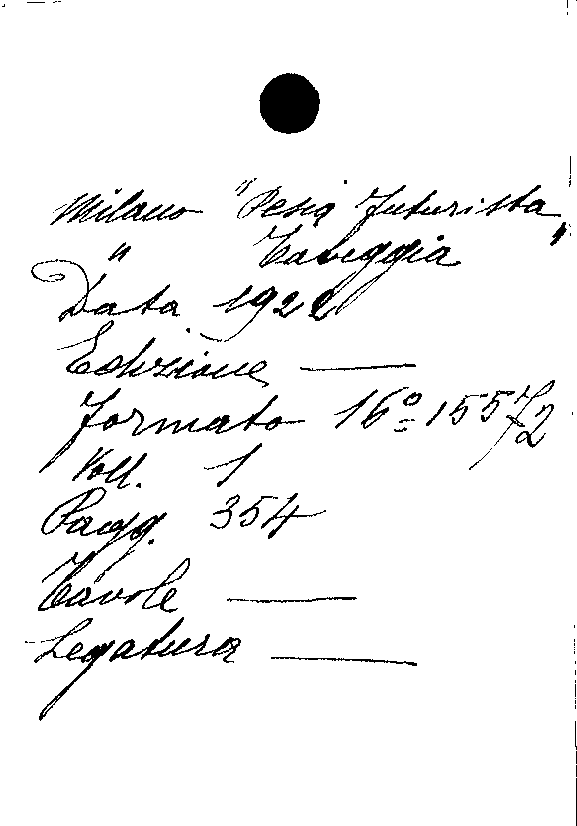 Milano "Pesia Futurista"
" Taveggia
Data 1922
Edizione —
Formato 16º 15572
Voll. 1
Pagg. 354
Tavole —
Legatura —